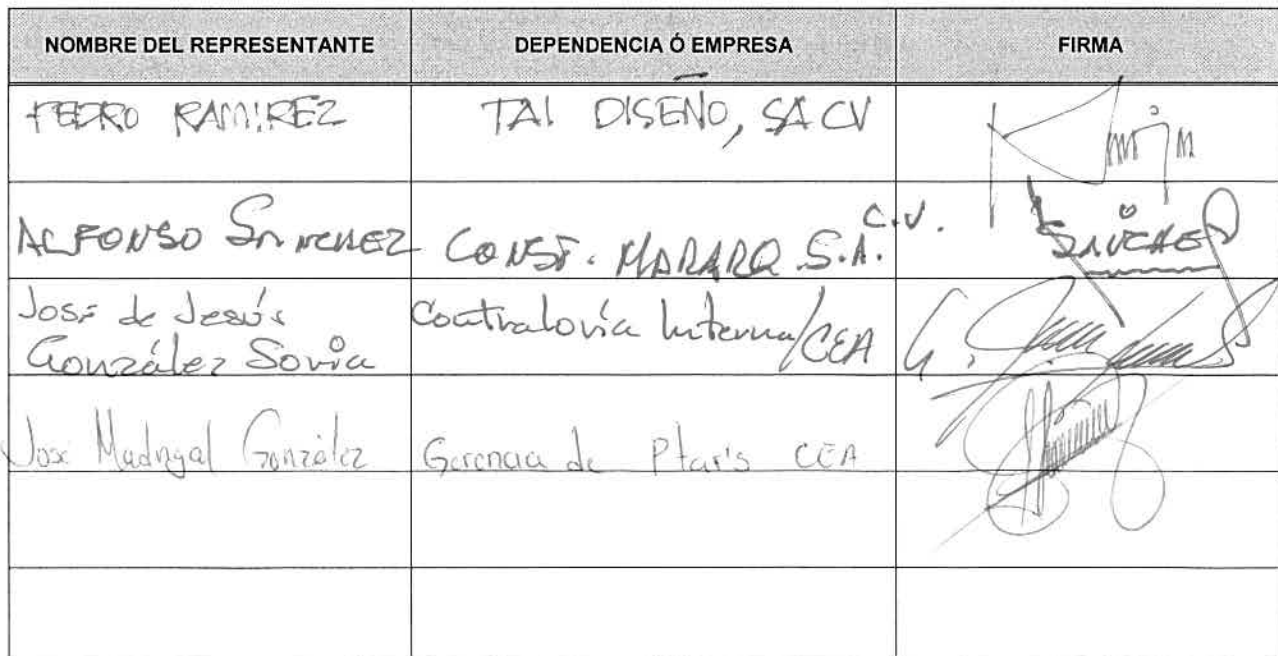 NOMBRE DEL REPRESENTANTE DEPENDENCIA Ó EMPRESA FIRMA
PEDRO RAMIREZ TAI DISEÑO, SA CV
ALFONSO SANCHEZ CONST. MARARQ S.A. C.V. SANCHEZ
José de Jesús
González Soria Contraloría Interna/CEA
José Madrigal González Gerencia de Ptar's CEA